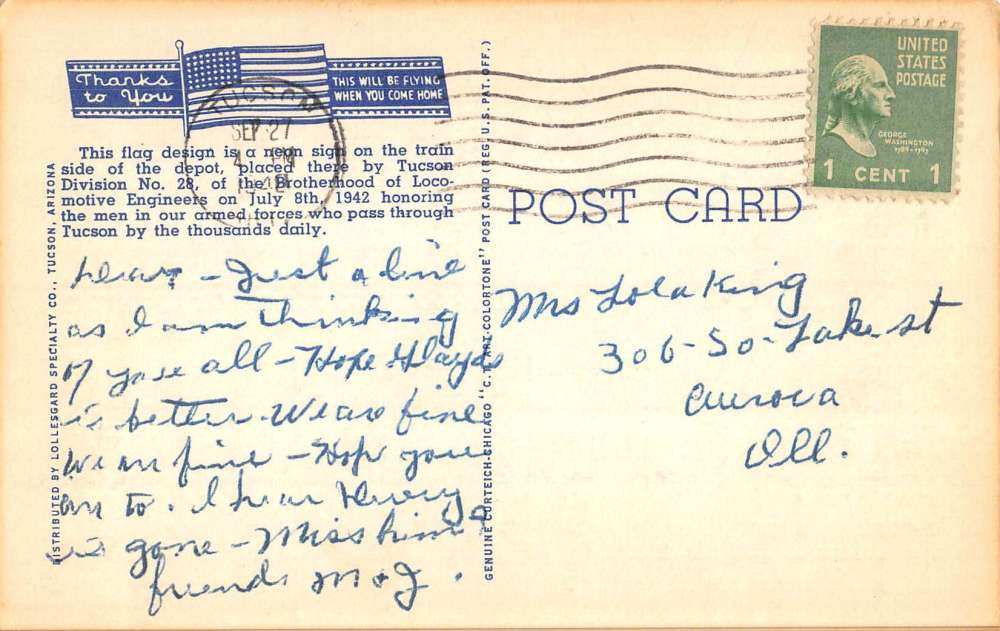 Thanks to You
THIS WILL BE FLYING
WHEN YOU COME HOME
TUCSON
SEP 27
UNITED
STATES
POSTAGE
GEORGE
WASHINGTON
1789-1797
1 CENT 1
This flag design is a neon sign on the train
side of the depot, placed there by Tucson
Division No. 28, of the Brotherhood of Loco-
motive Engineers on July 8th, 1942 honoring
the men in our armed forces who pass through
Tucson by the thousands daily.
POST CARD
DISTRIBUTED BY LOLLESGARD SPECIALTY CO., TUCSON, ARIZONA
GENUINE CURTEICH-CHICAGO "C.T. ART-COLORTONE" POST CARD (REG. U.S. PAT. OFF.)
Dear - Just a line
as I am Thinking
of you all - Hope
is better. We are fine
We are fine - Hope you
are to. I hear
is gone - Miss him
friends M & J.
Mrs Lola King
306 - So - Lake st
Aurora
Ill.